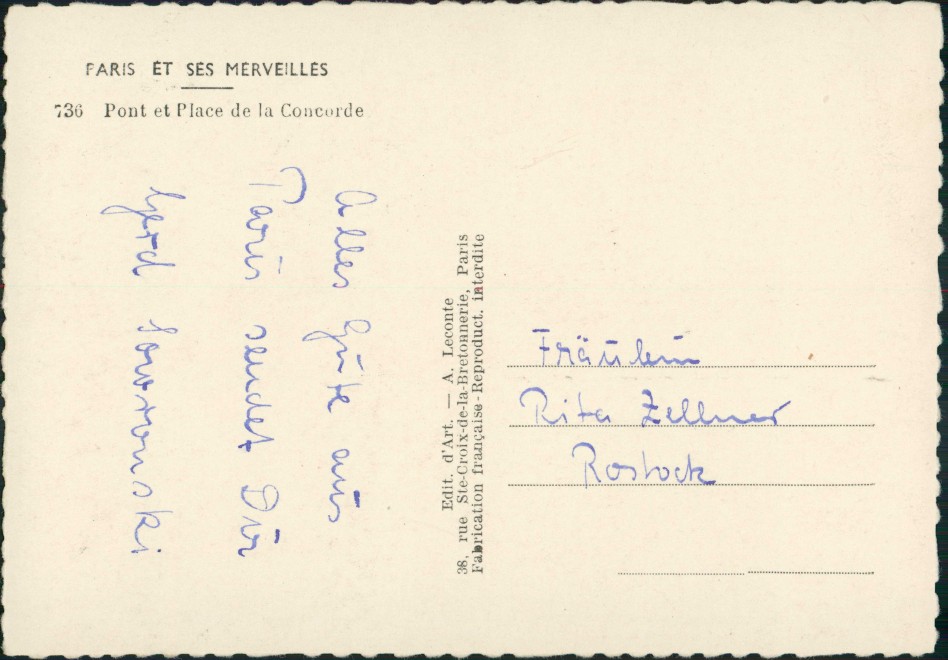 PARIS ET SES MERVEILLES
736 Pont et Place de la Concorde
Alles Gute aus
Paris sendet Dir
Gerd
Edit. d'Art. — A. Leconte
38, rue Ste-Croix-de-la-Bretonnerie, Paris
Fabrication française - Reproduct. interdite
Fräulein
Rita Zellner
Rostock